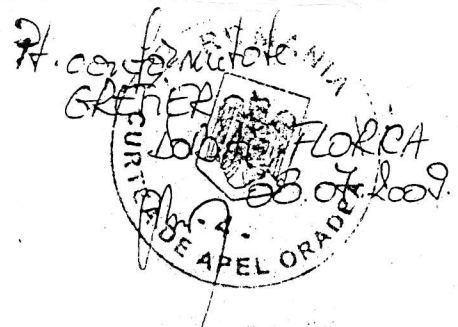 Pt. conformitate
GREFIER
FLORICA
08.07.2009.
ROMANIA
CURTEA DE APEL ORADEA